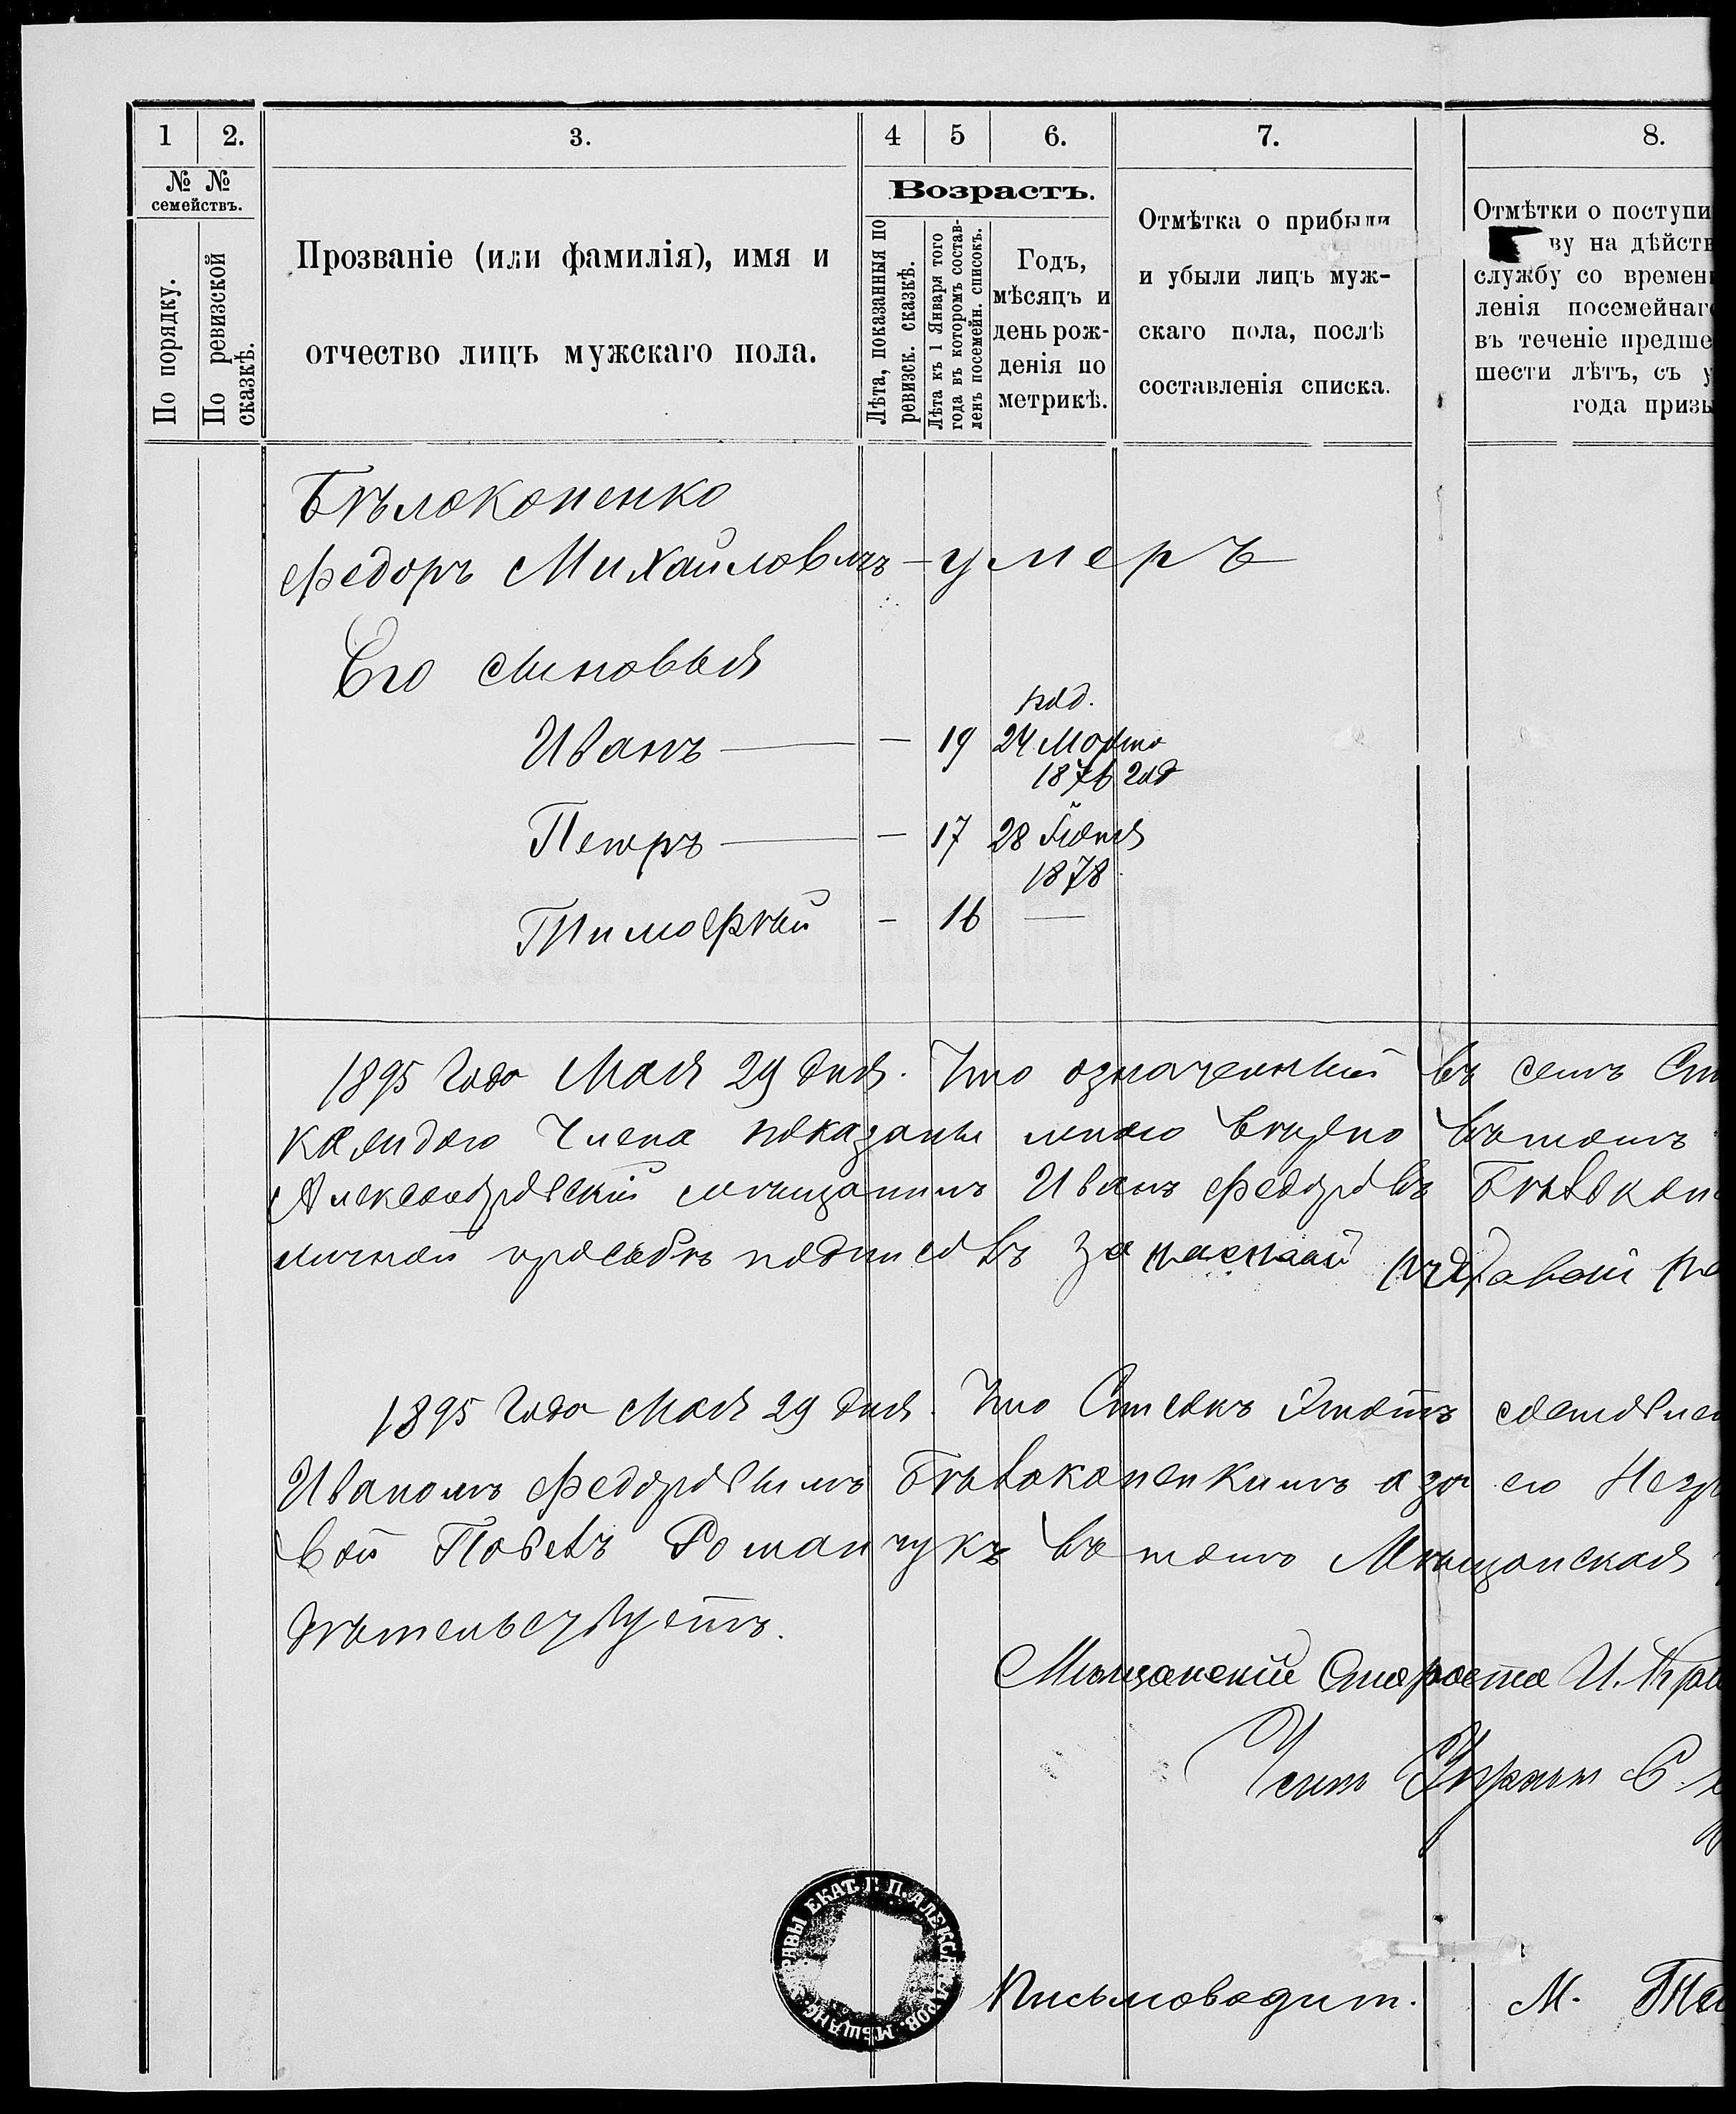 1 2. 3. 4 5 6. 7. 8.
№ № семействъ.
По порядку.
По ревизской сказкѣ.
Прозваніе (или фамилія), имя и
отчество лицъ мужскаго пола.
Возрастъ.
Лѣта, показанныя по ревизск. сказкѣ.
Лѣта къ 1 Января того года въ которомъ составленъ посемейн. списокъ.
Годъ,
мѣсяцъ и
день рож-
денія по
метрикѣ.
Отмѣтка о прибыли
и убыли лицъ муж-
скаго пола, послѣ
составленія списка.
Отмѣтки о поступи
ву на дѣйств
службу со времен
ленія посемейнаг
въ теченіе предше
шести лѣтъ, съ у
года призы
Бѣлоконенко
Федоръ Михайловичъ - умеръ
Его сыновья
род.
Иванъ — — 19 24 Марта
1876 год
Петръ — — 17 28 Июня
1878
Тимофѣй - 16 —
1895 года Мая 29 дня. Что означенный въ семъ Сп
каждого члена показаны мною вѣрно въ томъ
Александровскій мѣщанинъ Иванъ Федоровъ Бѣлокон
личной просьбѣ
1895 года Мая 29 дня. Что Списокъ этотъ составлен
Иваномъ Федоровымъ Бѣлоконенкимъ а за его Негр
вой Павелъ Романчукъ въ томъ Мѣщанская
дѣтельствуетъ.
Мѣщанскій Староста И. Кра
Член Управы С.
РАВЫ ЕКАТ. Г. П. АЛЕКСАНДРОВ. МѢЩАНС
Письмоводит. М. Та